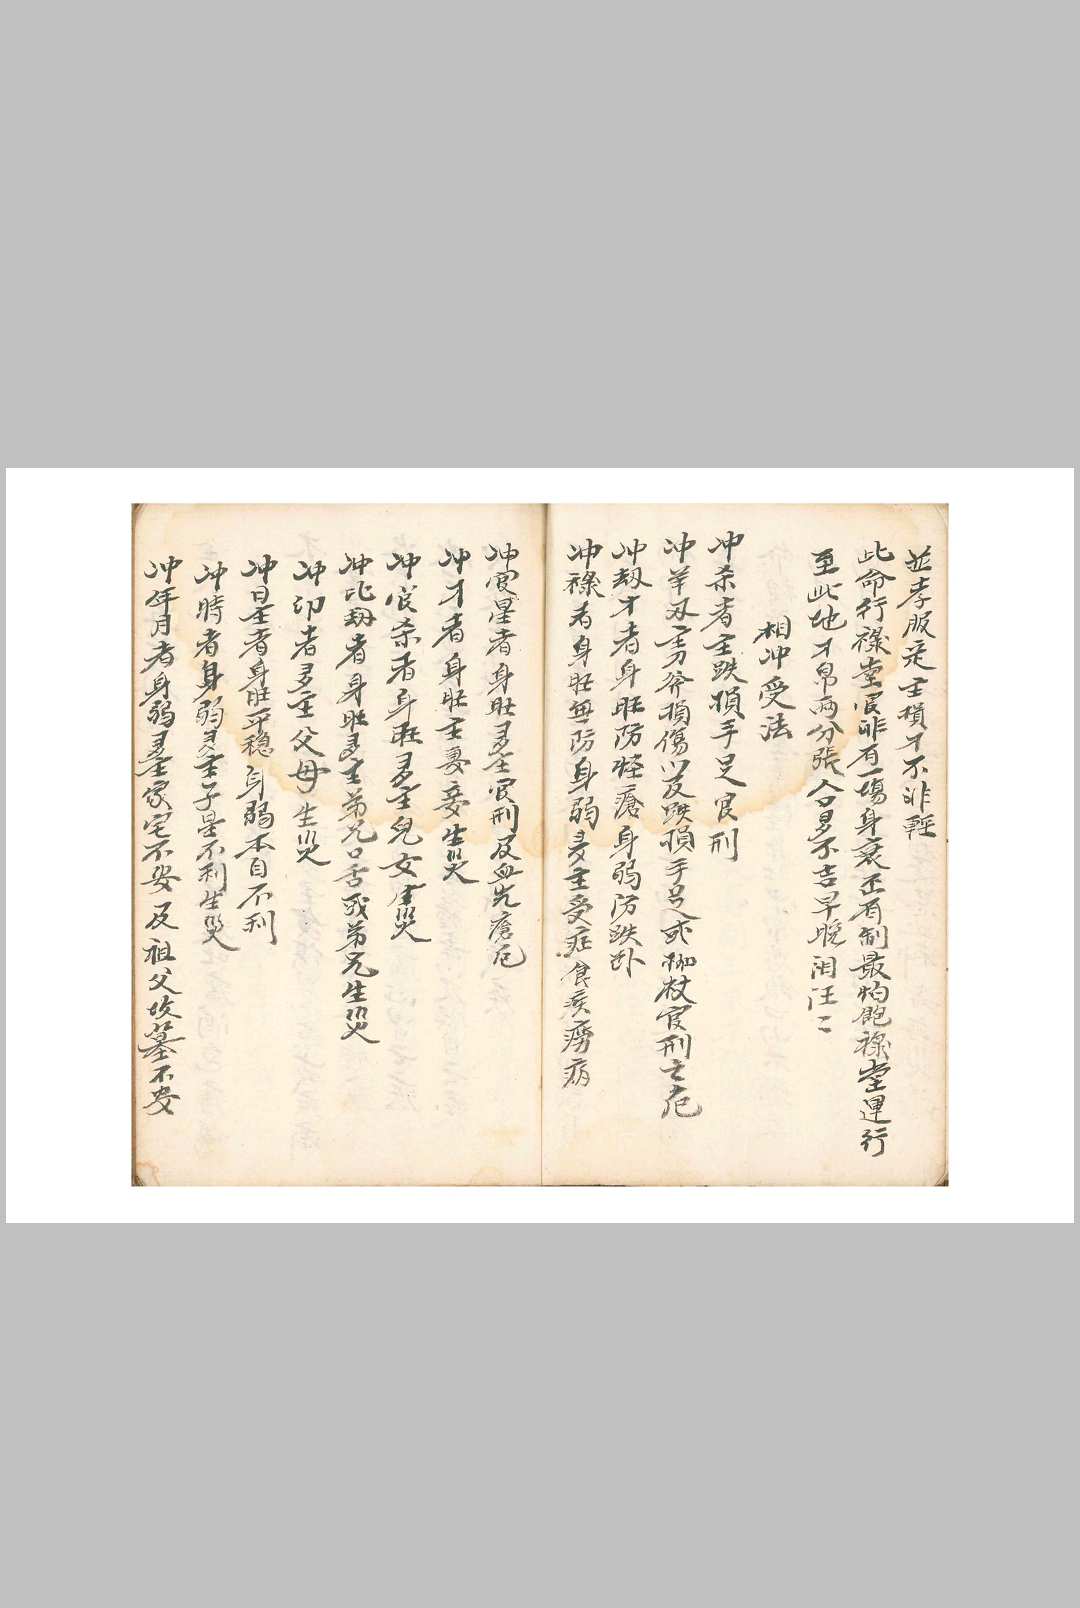 並孝服定主損才不非輕
此命行祿堂官非有一場身衰丕有制最怕飽祿堂運行
至此地才帛兩分張人口多不吉早晚泪汪〻
相冲受法
冲杀者主跌損手足官刑
冲羊刃主刀斧損傷以及跌損手足或枷杖官刑之厄
冲劫才者身旺防怪瘡身弱防跌卦
冲祿者身旺無防身弱多主受症食疾癆病
冲官星者身旺多主官刑及血光瘡厄
冲才者身旺主妻妾生災
冲官杀者身旺多主兒女生災
冲比劫者身旺多主弟兄口舌或弟兄生災
冲印者多主父母生災
冲日主者身旺平穩身弱本自不利
冲時者身弱多主子星不利生災
冲年月者身弱多主家宅不安及祖父坟墓不安